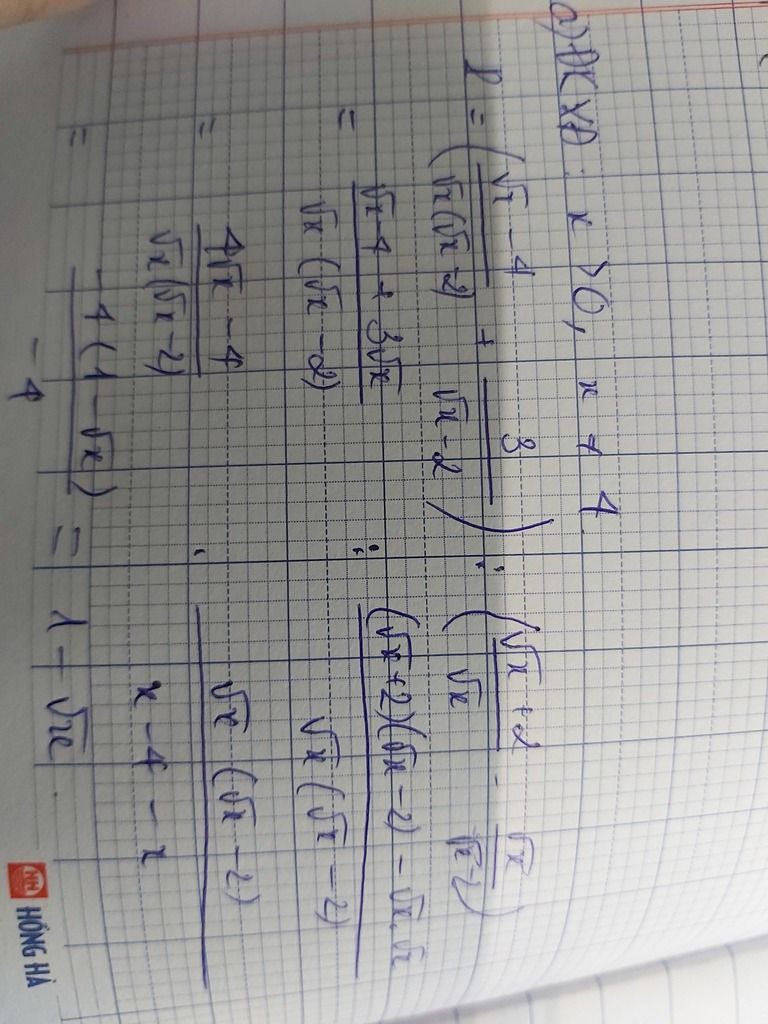 a) ĐKXĐ: x > 0, x ≠ 4
P = (√x - 4 / √x(√x - 2) + 3 / √x - 2) : (√x + 2 / √x - √x / √x - 2)
= √x - 4 + 3√x / √x(√x - 2) : (√x + 2)(√x - 2) - √x.√x / √x(√x - 2)
= 4√x - 4 / √x(√x - 2) . √x(√x - 2) / x - 4 - x
= -4(1 - √x) / -4 = 1 - √x
HỒNG HÀ